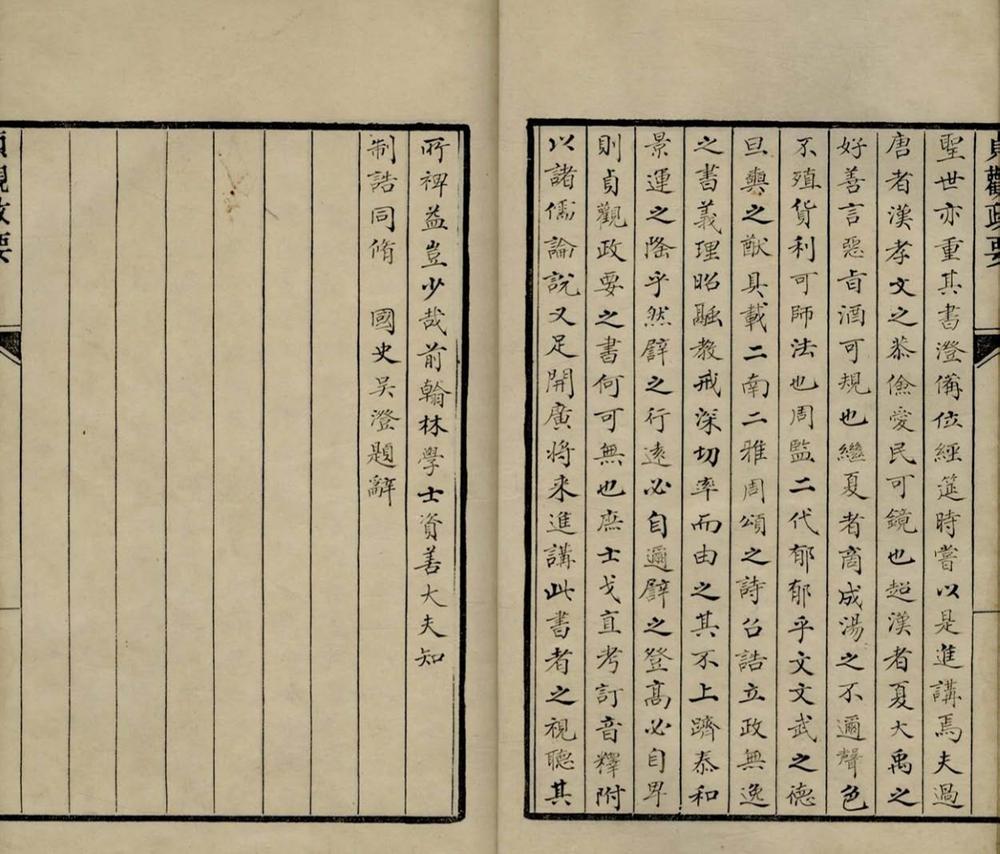 貞觀政要
聖世亦重其書澄備位經筵時嘗以是進講焉夫過
唐者漢孝文之恭儉愛民可鏡也超漢者夏大禹之
好善言惡旨酒可規也繼夏者商成湯之不邇聲色
不殖貨利可師法也周監二代郁郁乎文文武之德
旦奭之猷具載二南二雅周頌之詩召誥立政無逸
之書義理昭融教戒深切率而由之其不上躋泰和
景運之隆乎然譬之行遠必自邇譬之登高必自卑
則貞觀政要之書何可無也庶士戈直考訂音釋附
以諸儒論說又足開廣將来進講此書者之視聽其
所裨益豈少哉前翰林學士資善大夫知
制誥同脩　國史吳澄題辭
貞觀政要